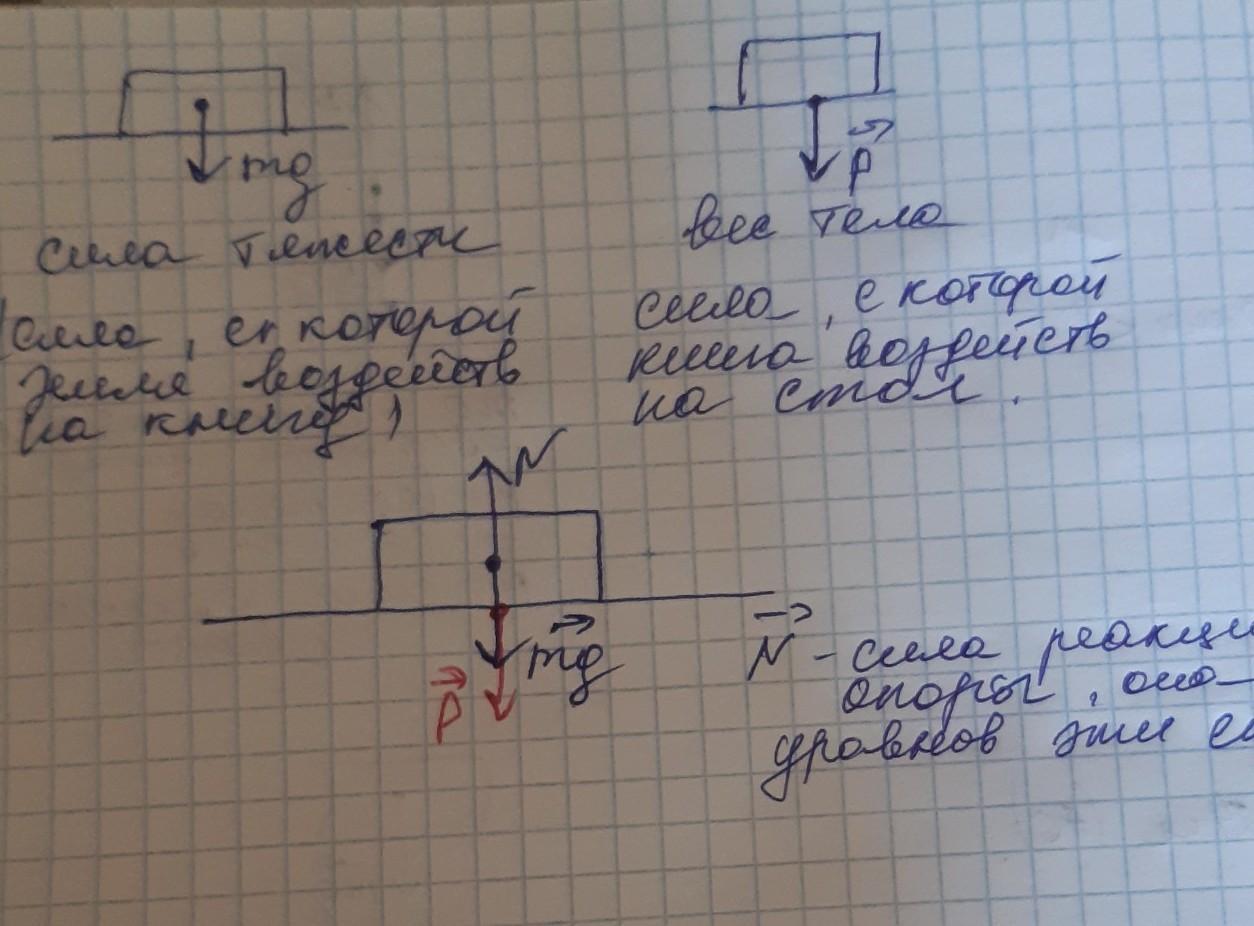 mg
P
сила тяжести
вес тела
(сила, с которой
земля воздейств
на книгу)
сила, с которой
книга воздейств
на стол.
N
mg
P
N - сила реакци
опоры, она
уравнов эти си